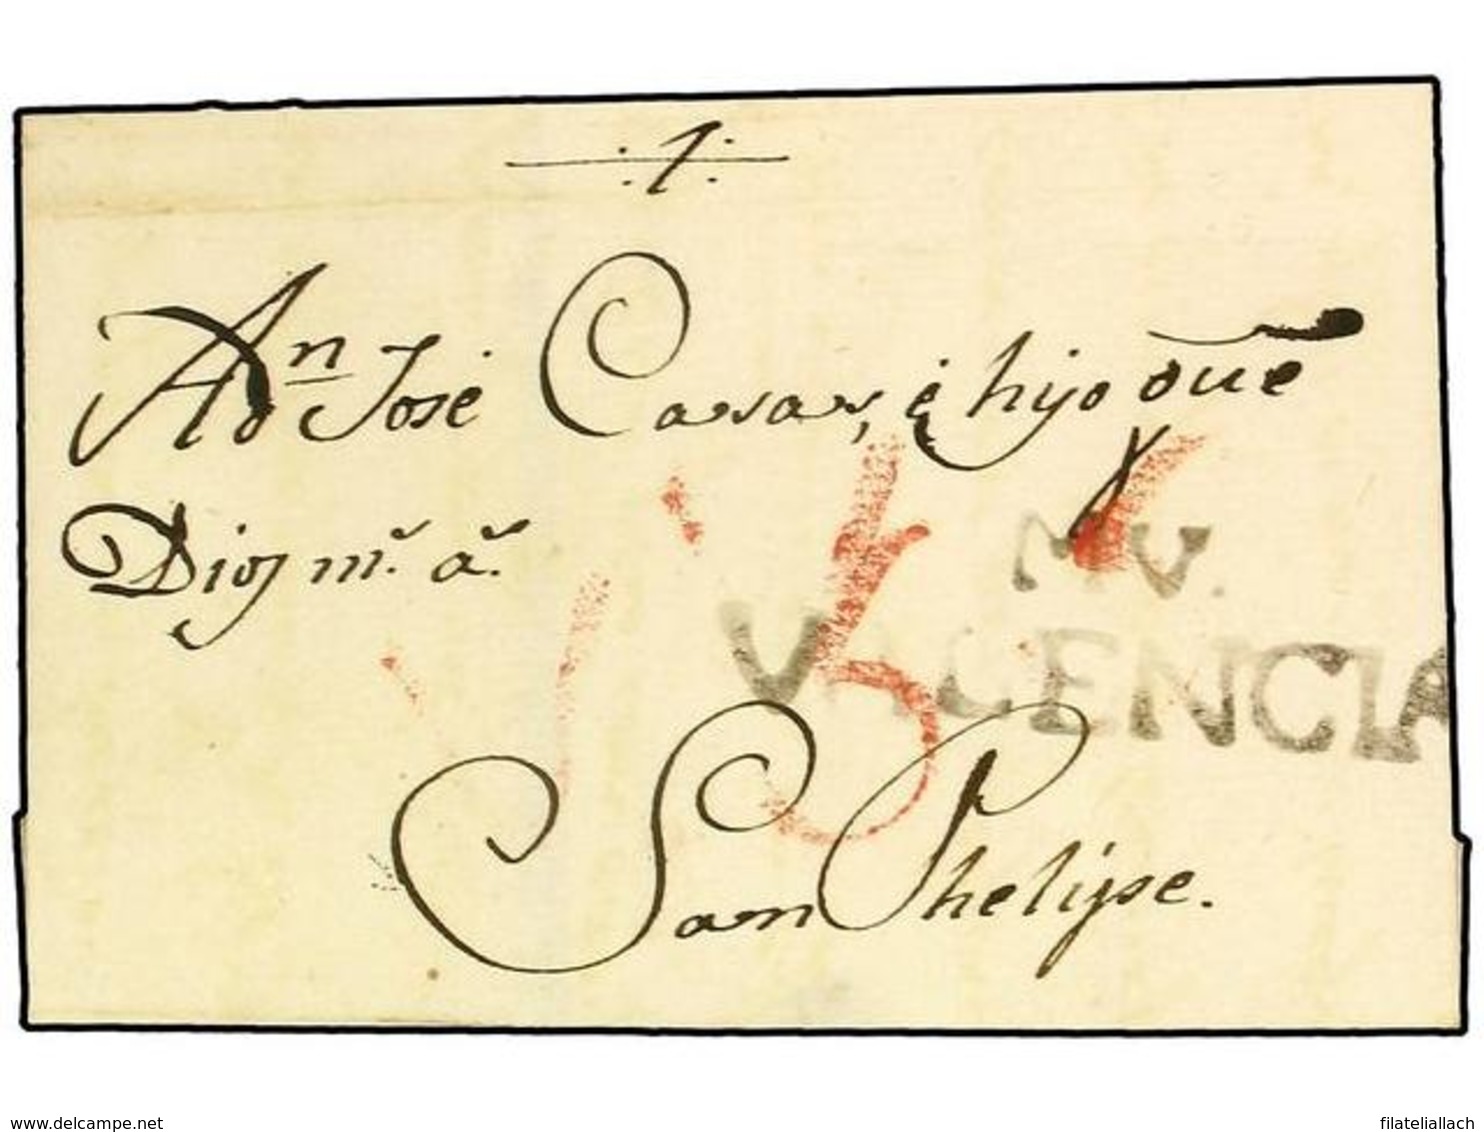 A Dn José Casas, é hijo q̃ue
Dios m.s a.s
MV.
VALENCIA
15
San Phelipe.
www.delcampe.net
filateliallach